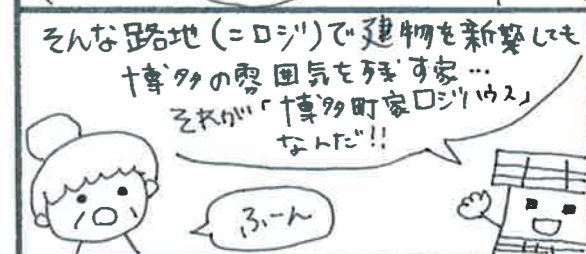 そんな路地(=ロジ)で建物を新築しても
博多の雰囲気を残す家…
それが「博多町家ロジハウス」
なんだ!!
ふーん